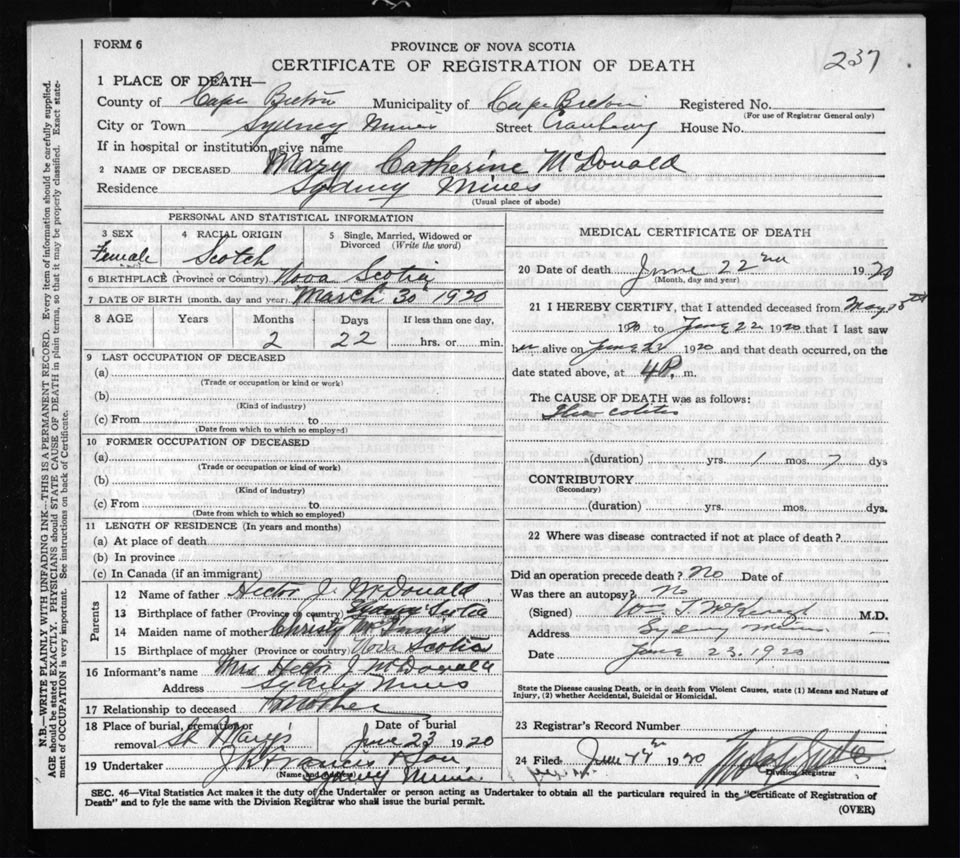 FORM 6
PROVINCE OF NOVA SCOTIA
CERTIFICATE OF REGISTRATION OF DEATH
237
1 PLACE OF DEATH—
County of Cape Breton Municipality of Cape Breton Registered No.
(For use of Registrar General only)
City or Town Sydney Mines Street Cranberry House No.
If in hospital or institution, give name
2 NAME OF DECEASED Mary Catherine McDonald
Residence Sydney Mines
(Usual place of abode)
PERSONAL AND STATISTICAL INFORMATION
3 SEX 4 RACIAL ORIGIN 5 Single, Married, Widowed or Divorced (Write the word)
Female Scotch
6 BIRTHPLACE (Province or Country) Nova Scotia
7 DATE OF BIRTH (month, day and year) March 30 1920
8 AGE Years Months Days If less than one day,
2 22 hrs. or min.
9 LAST OCCUPATION OF DECEASED
(a)
(Trade or occupation or kind or work)
(b)
(Kind of industry)
(c) From to
(Date from which to which so employed)
10 FORMER OCCUPATION OF DECEASED
(a)
(Trade or occupation or kind of work)
(b)
(Kind of industry)
(c) From to
(Date from which to which so employed)
11 LENGTH OF RESIDENCE (In years and months)
(a) At place of death
(b) In province
(c) In Canada (if an immigrant)
Parents
12 Name of father Hector J. McDonald
13 Birthplace of father (Province or country) Nova Scotia
14 Maiden name of mother Christy McInnis
15 Birthplace of mother (Province or country) Nova Scotia
16 Informant's name Mrs Hector J McDonald
Address Sydney Mines
17 Relationship to deceased Mother
18 Place of burial, cremation or removal St Marys Date of burial June 23 1920
19 Undertaker J R Francis & Son
(Name and address) Sydney Mines
MEDICAL CERTIFICATE OF DEATH
20 Date of death June 22nd 1920
(Month, day and year)
21 I HEREBY CERTIFY, that I attended deceased from May
1920 to June 22 1920 that I last saw
her alive on June 22 1920 and that death occurred, on the
date stated above, at 4 P. m.
The CAUSE OF DEATH was as follows:
Ileo colitis
(duration) yrs. 1 mos. 7 dys
CONTRIBUTORY
(Secondary)
(duration) yrs. mos. dys.
22 Where was disease contracted if not at place of death?
Did an operation precede death? No Date of
Was there an autopsy? No
(Signed) Wm. J. M.D.
Address Sydney Mines
Date June 23. 1920
State the Disease causing Death, or in death from Violent Causes, state (1) Means and Nature of
Injury, (2) whether Accidental, Suicidal or Homicidal.
23 Registrar's Record Number
24 Filed June 1920
Division Registrar
SEC. 46—Vital Statistics Act makes it the duty of the Undertaker or person acting as Undertaker to obtain all the particulars required in the "Certificate of Registration of
Death" and to fyle the same with the Division Registrar who shall issue the burial permit.
(OVER)
N.B.—WRITE PLAINLY WITH UNFADING INK—THIS IS A PERMANENT RECORD. Every item of information should be carefully supplied.
AGE should be stated EXACTLY. PHYSICIANS should STATE CAUSE OF DEATH in plain terms, so that it may be properly classified. Exact state-
ment of OCCUPATION is very important. See instructions on back of Certificate.